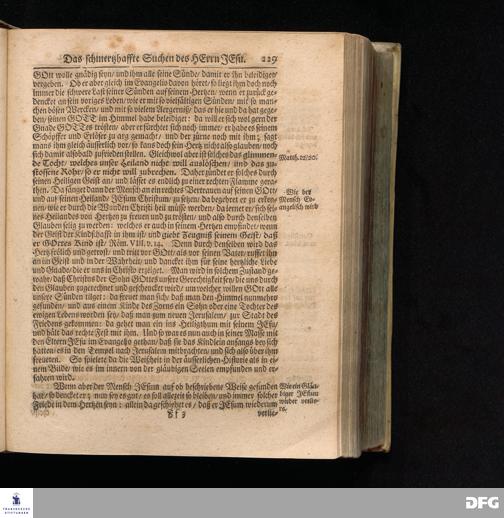 Das schmertzhaffte Suchen des HErrn JEsu. 229
GOtt wolle gnädig seyn/ und ihm alle seine Sünde/ damit er ihn beleidiget/
vergeben. Ob er aber gleich im Evangelio davon höret/ so liegt ihm doch noch
immer die schwere Last seiner Sünden auf seinem Hertzen/ wenn er zurück ge-
dencket an sein voriges Leben/ wie er mit so vielfältigen Sünden/ mit so man-
chen bösen Wercken/ und mit so vielem Aergerniß/ das er hie und da hat gege-
ben/ seinen GOTT im Himmel habe beleidiget: da will er sich wol gern der
Gnade GOTTes trösten/ aber er fürchtet sich noch immer/ er habe es seinem
Schöpffer und Erlöser zu arg gemacht/ und der zürne noch mit ihm; sagt
mans ihm gleich äusserlich vor/ so kans doch sein Hertz nicht also glauben/ noch
sich damit alsobald zufrieden stellen. Gleichwol aber ist solches das glimmen-
de Tocht/ welches unser Heiland nicht will auslöschen/ und das zu-
stossene Rohr/ so er nicht will zubrechen. Daher zündet er solches durch
seinen Heiligen Geist an/ und lässet es endlich zu einer rechten Flamme gera-
then. Da fänget dann der Mensch an ein rechtes Vertrauen auf seinen GOtt/
und auf seinen Heiland/ JEsum Christum/ zu setzen/ da begehret er zu erken-
nen/ wie er durch die Wunden Christi heil müsse werden/ da lernet er/ sich sei-
nes Heilandes von Hertzen zu freuen und zu trösten/ und also durch denselben
Glauben selig zu werden: welches er auch in seinem Hertzen empfindet/ wenn
der Geist der Kindschafft in ihm ist/ und giebt Zeugniß seinem Geist/ daß
er GOttes Kind ist/ Röm. VIII. v. 14. Denn durch denselben wird das
Hertz frölich und getrost/ und tritt vor GOtt/ als vor seinen Vater/ ruffet ihn
an im Geist und in der Wahrheit/ und dancket ihm für seine hertzliche Liebe
und Gnade/ die er uns in Christo erzeiget. Man wird in solchem Zustand ge-
wahr/ daß Christus der Sohn GOttes unsere Gerechtigkeit sey/ die uns durch
den Glauben zugerechnet und geschencket wird/ um welcher willen GOtt alle
unsere Sünden tilget: da freuet man sich/ daß man den Himmel nunmehro
gefunden/ und aus einem Kinde des Zorns ein Sohn oder eine Tochter des
ewigen Lebens worden sey/ daß man zum neuen Jerusalem/ zur Stadt des
Friedens gekommen: da gehet man ein ins Heiligthum mit seinem JEsu/
und hält das rechte Fest mit ihm. Und so war es nun auch in seiner Masse mit
den Eltern JEsu im Evangelio gethan/ daß sie das Kindlein anfangs bey sich
hatten/ es in den Tempel nach Jerusalem mitbrachten/ und sich also über ihm
freueten. So spielete da die Weißheit in der äusserlichen Historie als in ei-
nem Bilde/ wie es im innern von der gläubigen Seelen empfunden und er-
fahren wird.
Wenn aber der Mensch JEsum auf ob beschriebene Weise gefunden
hat/ so dencket er: nun sey es gut/ es soll allezeit so bleiben/ und immer solcher
Friede in dem Hertzen seyn: allein da geschiehet es/ daß er JEsum wiederum
Ff 3 verlie-
Matth. 12/20.
Wie der
Mensch Ev-
angelisch wird
Wie ein Gläu-
biger JEsum
wieder verlie-
re.
FRANCKESCHE
STIFTUNGEN
DFG